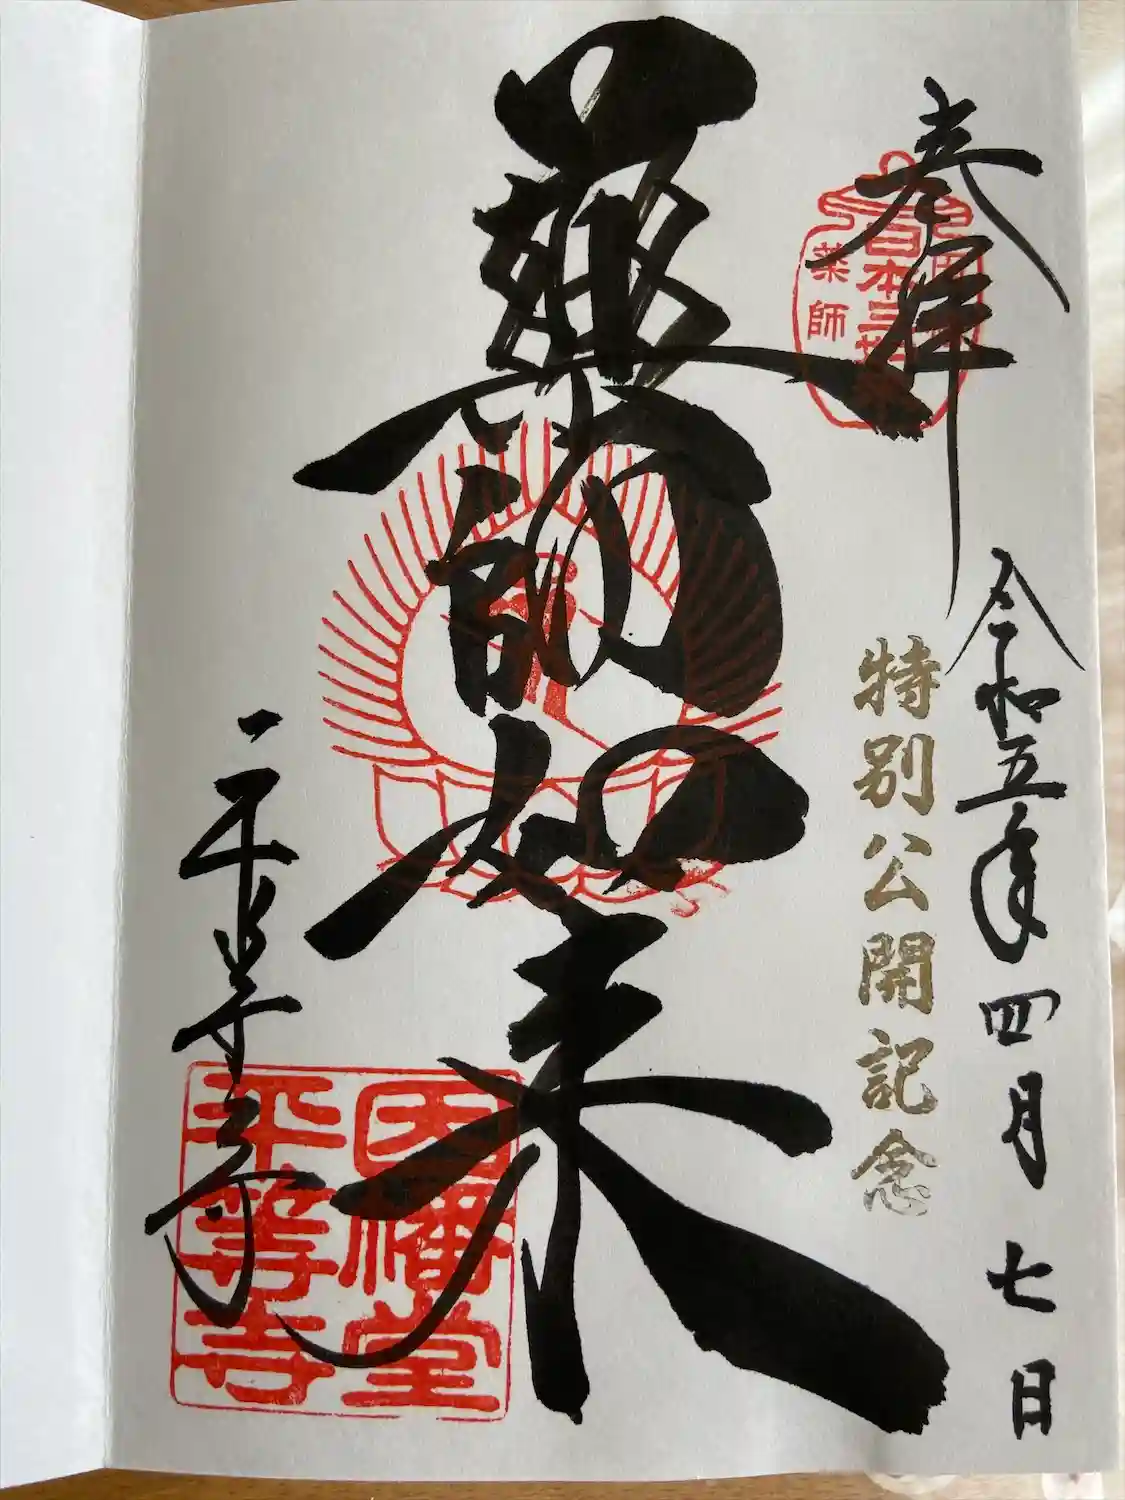 奉拝
日本三如来
薬師
令和五年四月七日
特別公開記念
薬師如来
平等寺
因幡堂
平等寺